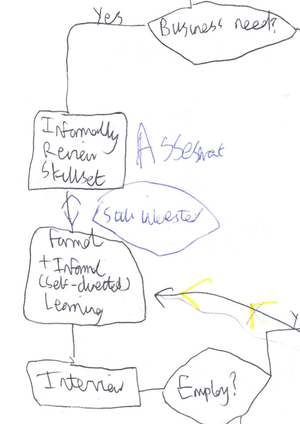 Yes
Business need?
Informally
Review
Skillset
Assesment
Formal
+ Informl
(self-directed)
Learning
Interview
Employ?
Y